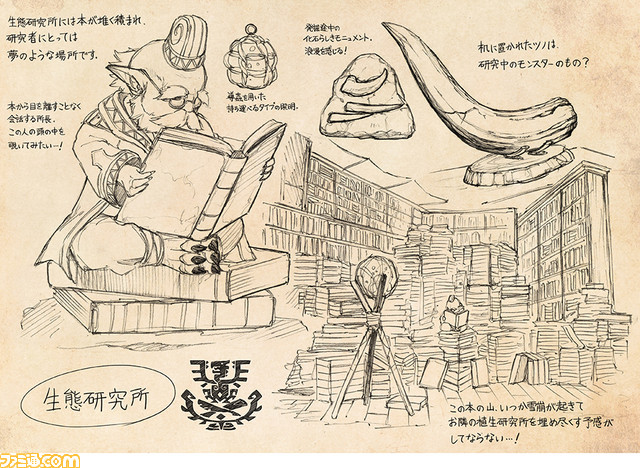 生態研究所には本が堆く積まれ、
研究者にとっては
夢のような場所です。
本から目を離すことなく
会話する所長。
この人の頭の中を
覗いてみたい…!
導蟲を用いた
持ち運べるタイプの照明。
発掘途中の
化石らしきモニュメント。
浪漫を感じる!
机に置かれたツノは、
研究中のモンスターのもの?
生態研究所
この本の山、いつか雪崩が起きて
お隣の植生研究所を埋め尽くす予感が
してならない…!
ファミ通.com